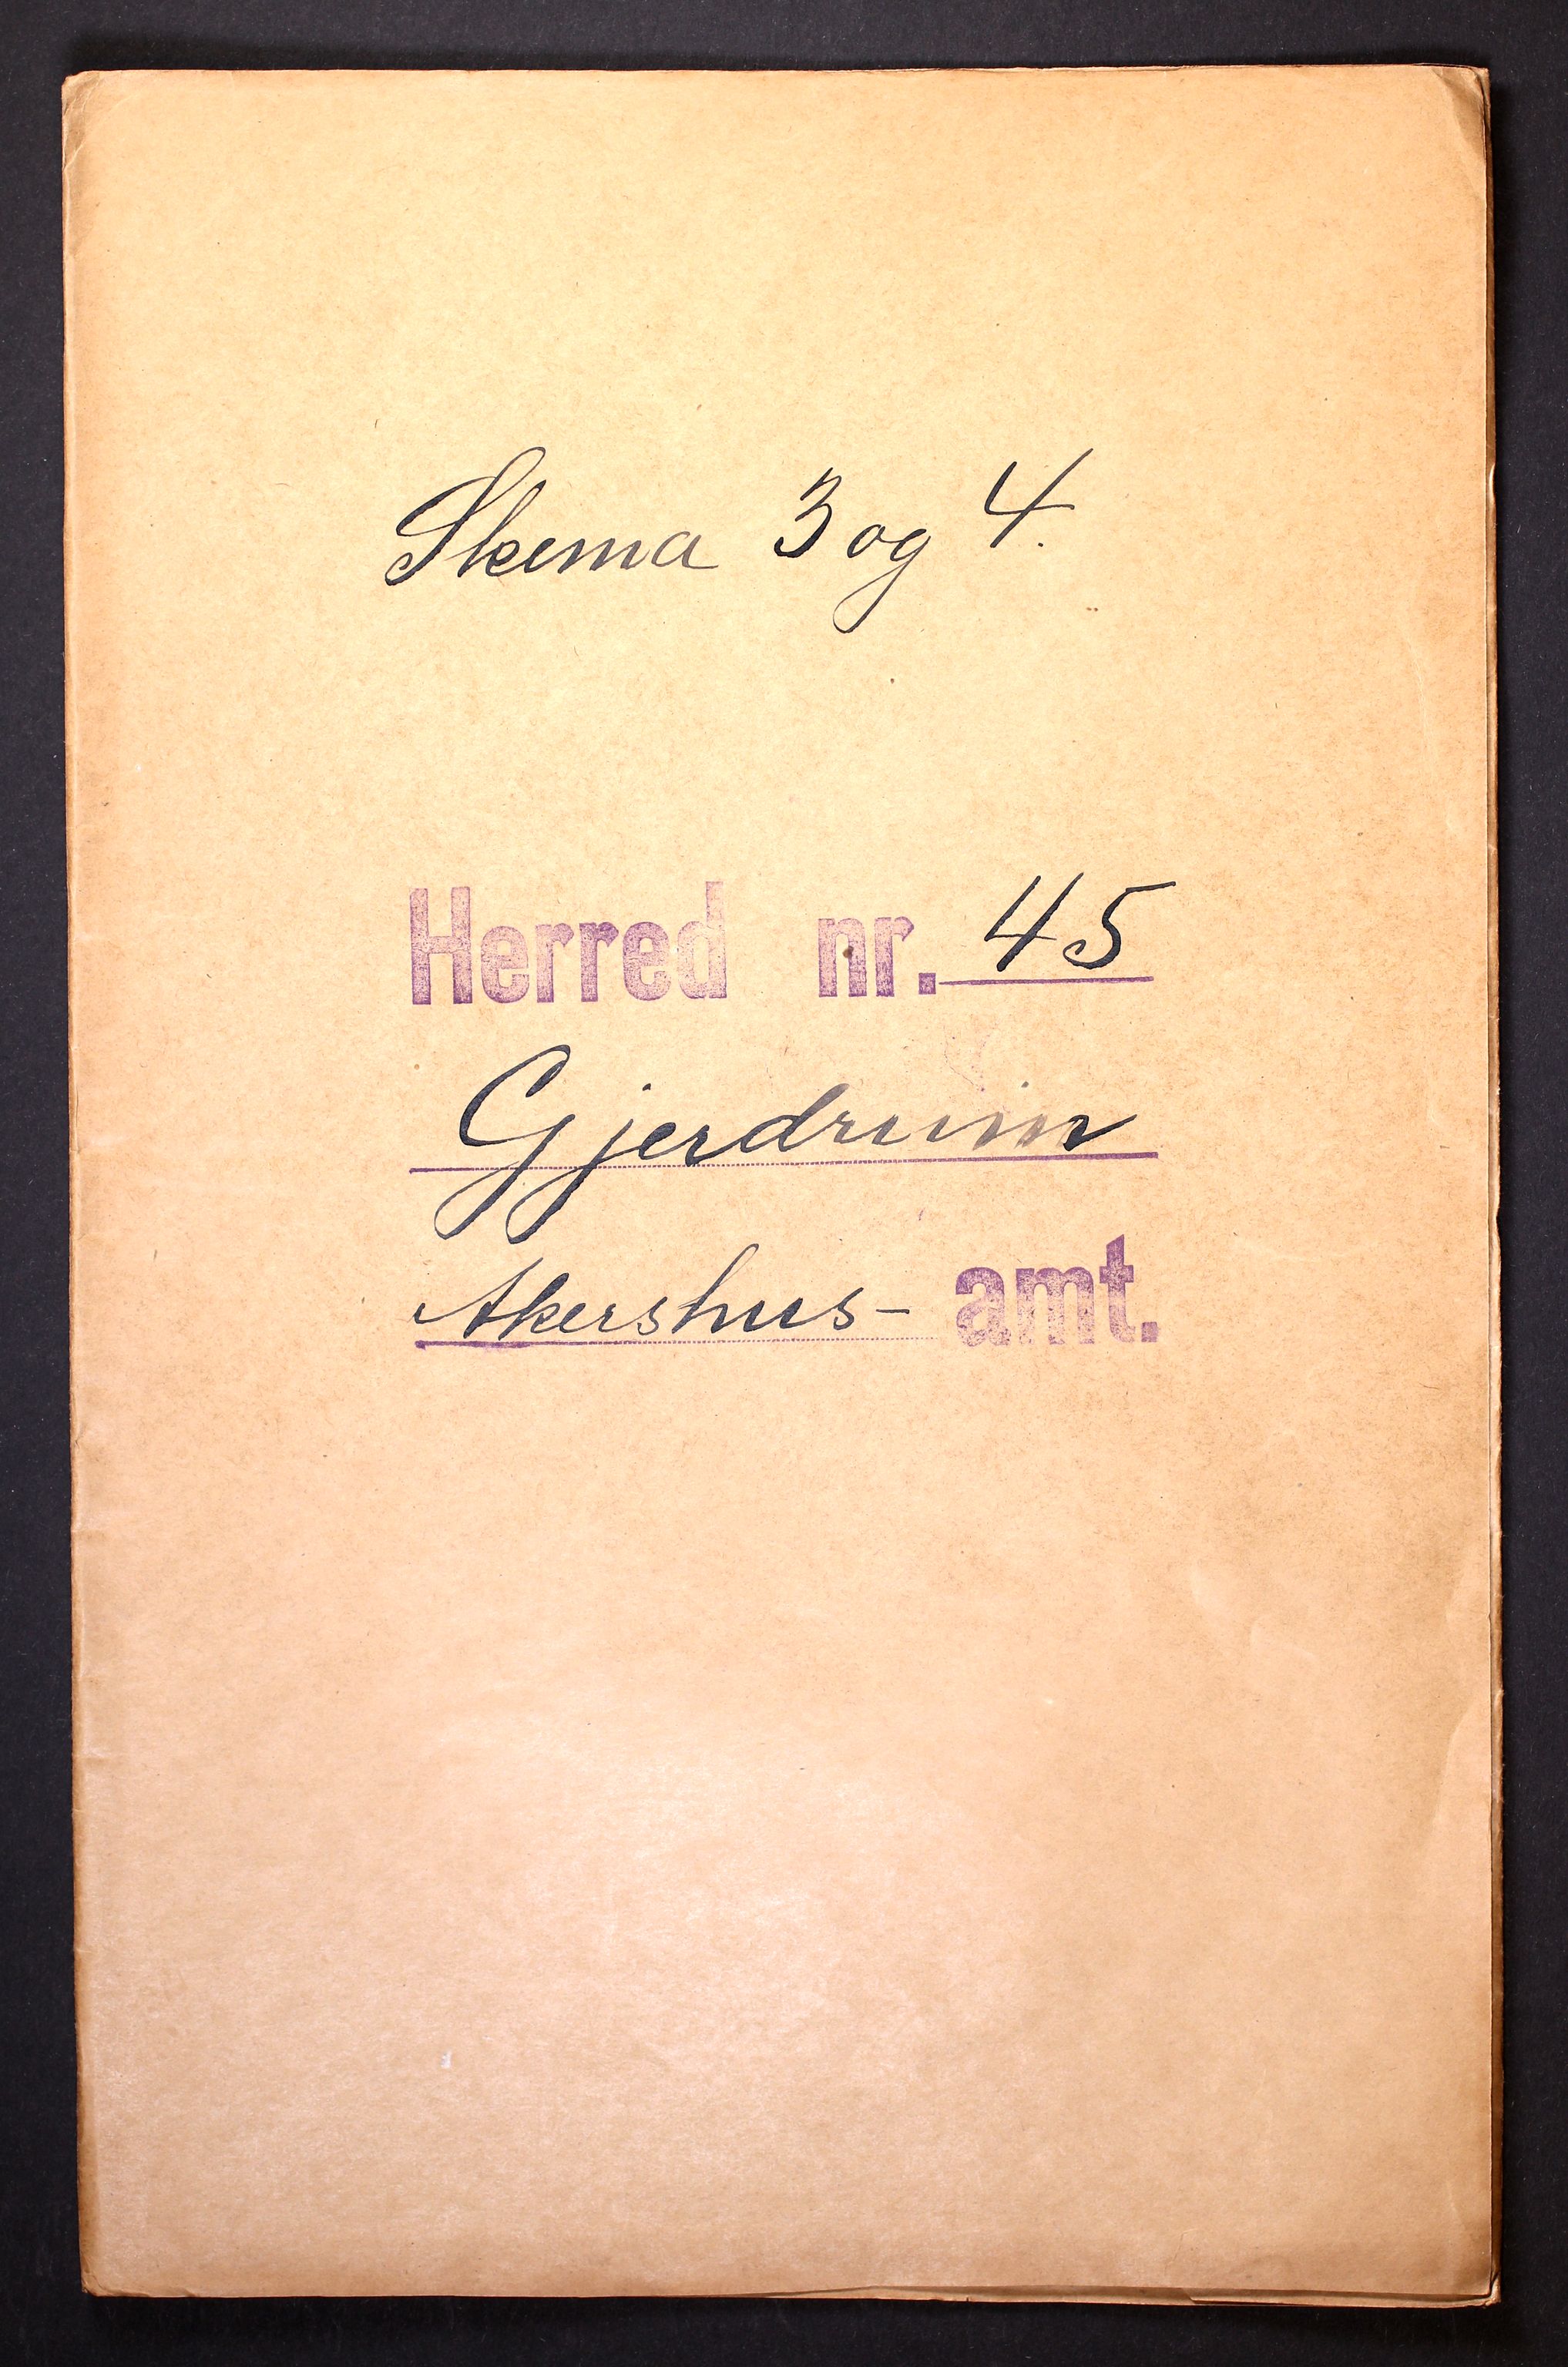 Skema 3 og 4.
Herred nr. 45
Gjerdrum
Akershus- amt.